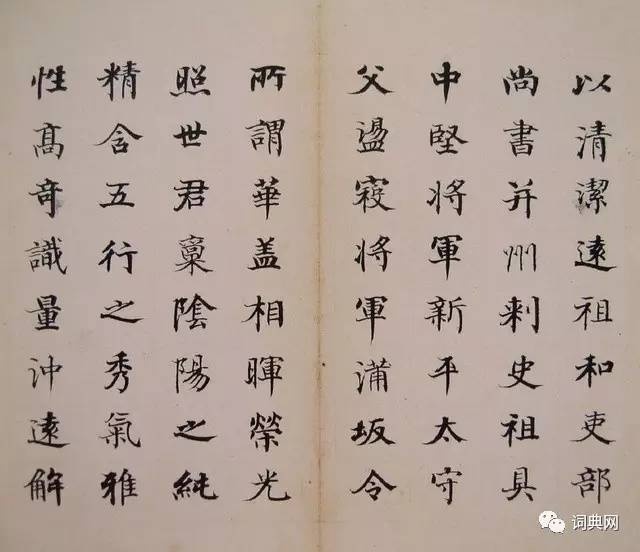 以清潔遠祖和吏部
尚書并州刺史祖具
中堅將軍新平太守
父盪寇將軍蒲坂令
所謂華盖相暉榮光
照世君稟陰陽之純
精含五行之秀氣雅
性高奇識量沖遠解
词典网